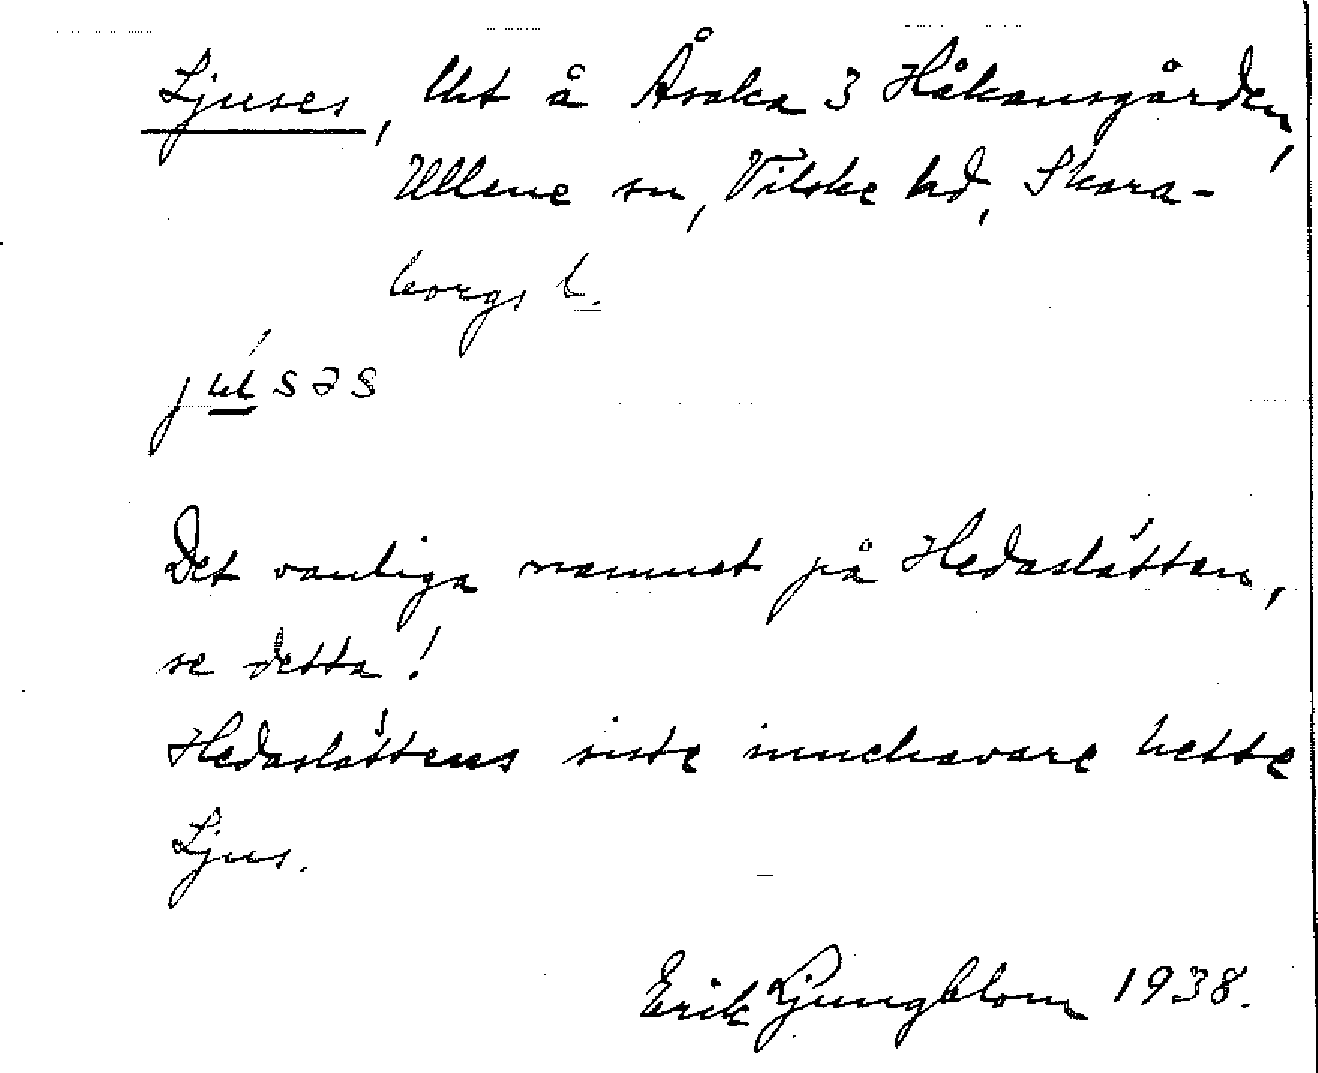 Ljuses, lht å Åsaka 3 Håkansgården,
Ullene sn, Vilske hd, Skara-
borgs l.
jusəs
Det vanliga namnet på Hedaslätten,
se detta!
Hedaslättens siste innehavare hette
Ljus.
Erik Ljungblom 1938.